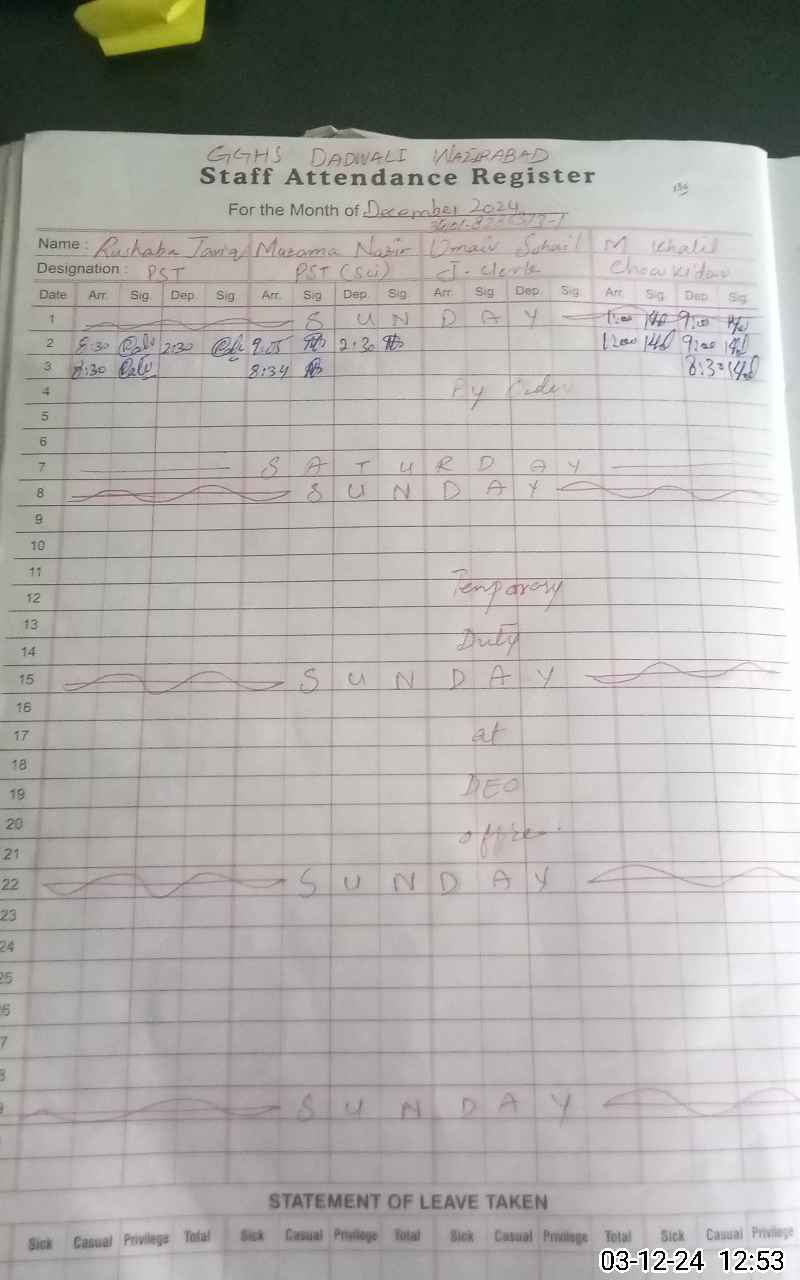 GGHS DADWALI WAZIRABAD
Staff Attendance Register
136
For the Month of December 2024
Name : Rushaba Tariq Muzama Nazir Umair Sohail M Khalil
Designation : PST PST (Sci) J-Clerk Chowkidar
Date Arr. Sig. Dep. Sig. Arr. Sig Dep. Sig. Arr. Sig Dep. Sig. Arr. Sig. Dep. Sig.
1 S U N D A Y 9:00
2 8:30 2:30 9:05 2:30 12:00 9:00
3 8:30 8:34 8:30
4 By Order
5
6
7 S A T U R D A Y
8 S U N D A Y
9
10
11 Temporary
12
13 Duty
14
15 S U N D A Y
16
17 at
18
19 DEO
20
21 office
22 S U N D A Y
23
24
25
6
7
8
9 S U N D A Y
STATEMENT OF LEAVE TAKEN
Sick Casual Privilege Total Sick Casual Privilege Total Sick Casual Privilege Total Sick Casual Privilege
03-12-24 12:53